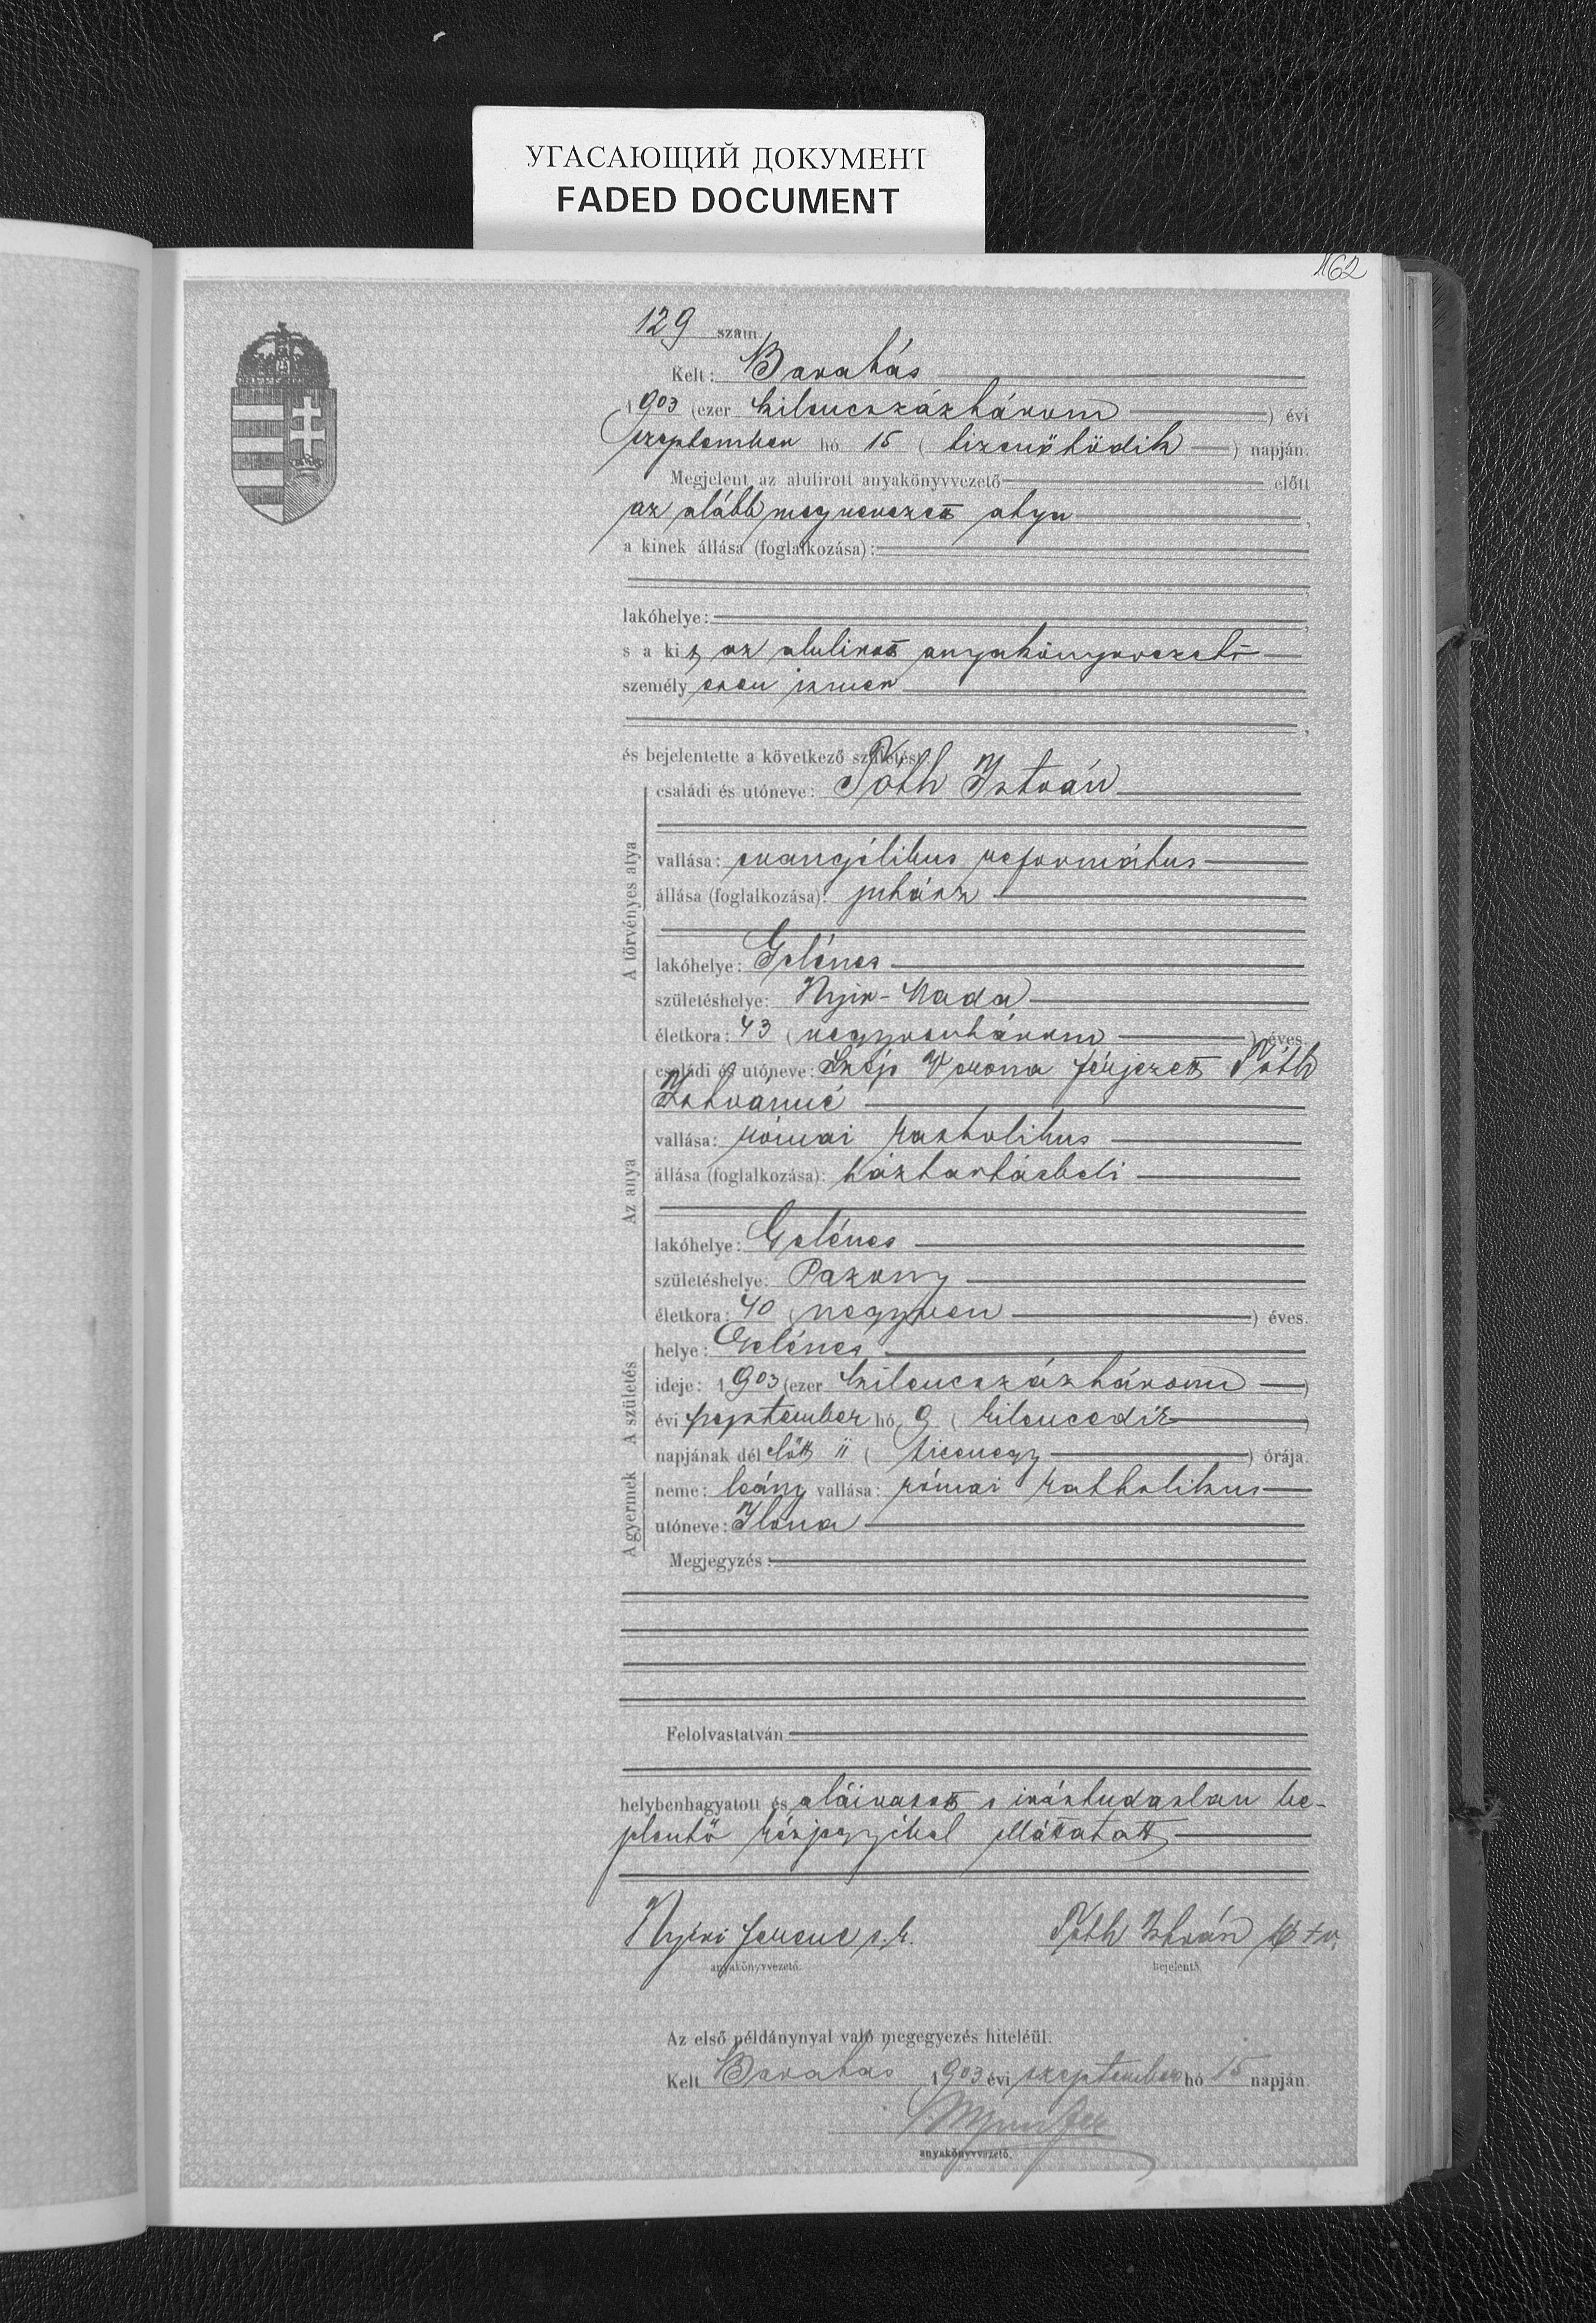 УГАСАЮЩИЙ ДОКУМЕНТ
FADED DOCUMENT
162
129 szám.
Kelt: Barabás
1903 (ezer kilencszázhárom) évi
szeptember hó 15 (tizenötödik) napján.
Megjelent az alulirott anyakönyvvezető előtt
az alább megnevezett atya,
a kinek állása (foglalkozása):
lakóhelye:
s a kit az alulirott anyakönyvvezető
személyesen ismer
és bejelentette a következő születést
A törvényes atya
családi és utóneve: Tóth István
vallása: evangélikus református
állása (foglalkozása): juhász
lakóhelye: Gelénes
születéshelye: Nyir-Mada
életkora: 43 (negyvenhárom) éves.
Az anya
családi és utóneve: Szép Verona férjezett Tóth
Istvánné
vallása: római katholikus
állása (foglalkozása): háztartásbeli
lakóhelye: Gelénes
születéshelye: Pazony
életkora: 40 (negyven) éves.
A születés
helye: Gelénes
ideje: 1903 (ezer kilencszázhárom)
évi szeptember hó 9 (kilencedik)
napjának délelőtt 11 (tizenegy) órája.
A gyermek
neme: leány vallása: római katholikus
utóneve: Ilona
Megjegyzés:
Felolvastatván
helybenhagyatott és aláiratott s irástudatlan be-
jelentő kézjegyével elláttatott
Nyiri Ferenc s. k.
anyakönyvvezető.
Tóth István
bejelentő.
Az első példánynyal való megegyezés hiteléül.
Kelt Barabás 1903 évi szeptember hó 15 napján.
anyakönyvvezető.